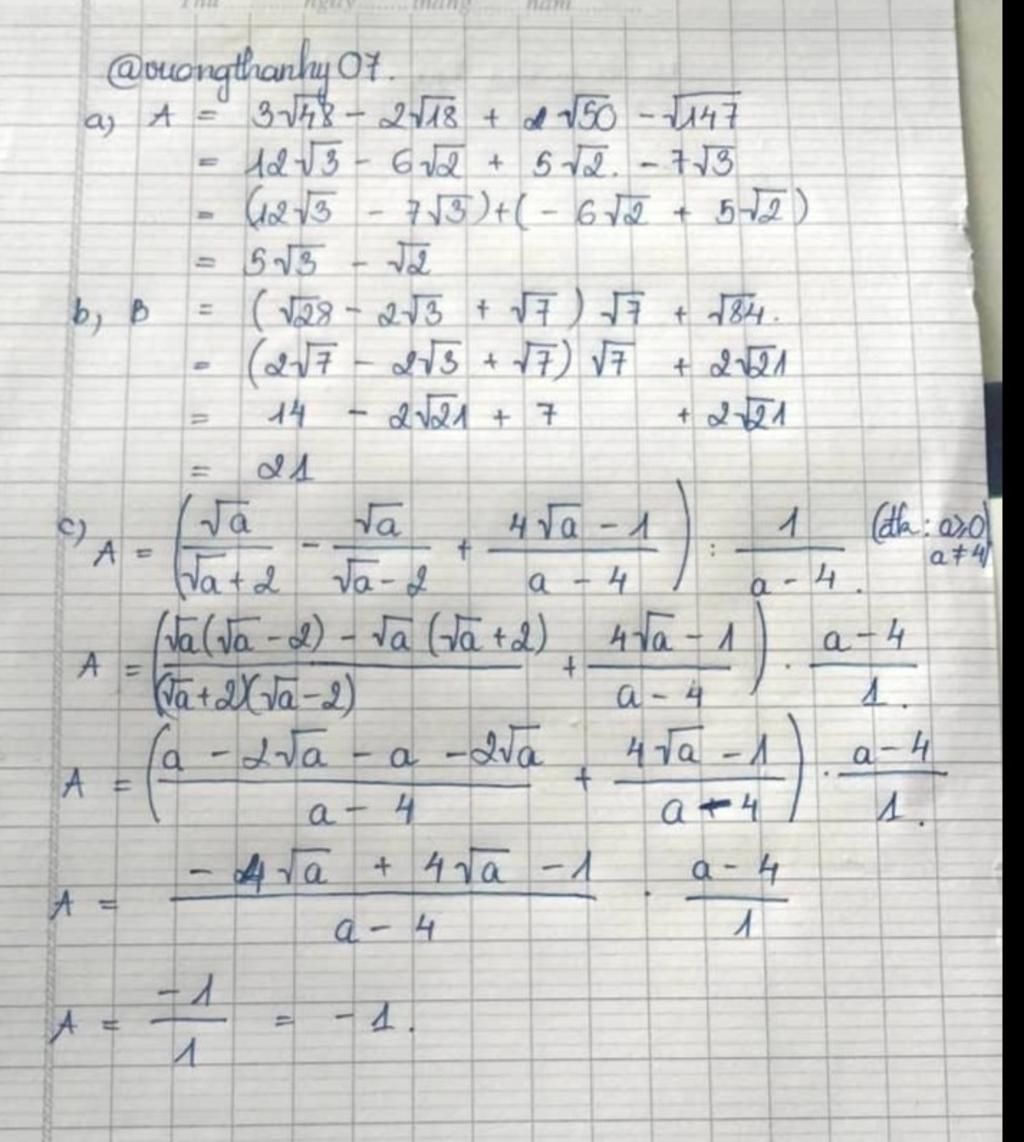 Thứ ngày tháng năm
@vuongthanhhy07.
a) A = 3√48 - 2√18 + 1√50 - √147
= 12√3 - 6√2 + 5√2. - 7√3
= (12√3 - 7√3) + (- 6√2 + 5√2)
= 5√3 - √2
b, B = (√28 - 2√3 + √7) √7 + √84.
= (2√7 - 2√3 + √7) √7 + 2√21
= 14 - 2√21 + 7 + 2√21
= 21
c) A = (√a/(√a + 2) - √a/(√a - 2) + (4√a - 1)/(a - 4)) : 1/(a - 4). (đk : a≥0 a≠4)
A = ((√a(√a - 2) - √a(√a + 2))/((√a + 2)(√a - 2)) + (4√a - 1)/(a - 4)) . (a - 4)/1.
A = ((a - 2√a - a - 2√a)/(a - 4) + (4√a - 1)/(a - 4)) . (a - 4)/1.
A = (- 4√a + 4√a - 1)/(a - 4) . (a - 4)/1
A = -1/1 = -1.